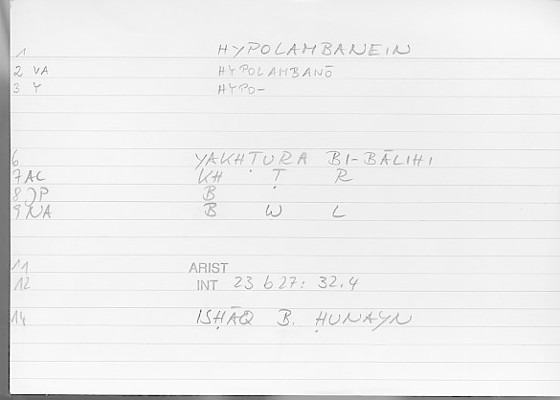 1 HYPOLAMBANEIN
2 VA HYPOLAMBANŌ
3 Y HYPO-
6 YAKHṬURA BI-BĀLIHI
7 AL KH Ṭ R
8 JP B
9 NA B W L
11 ARIST
12 INT 23 b 27: 32.4
14 ISḤĀQ B. ḤUNAYN